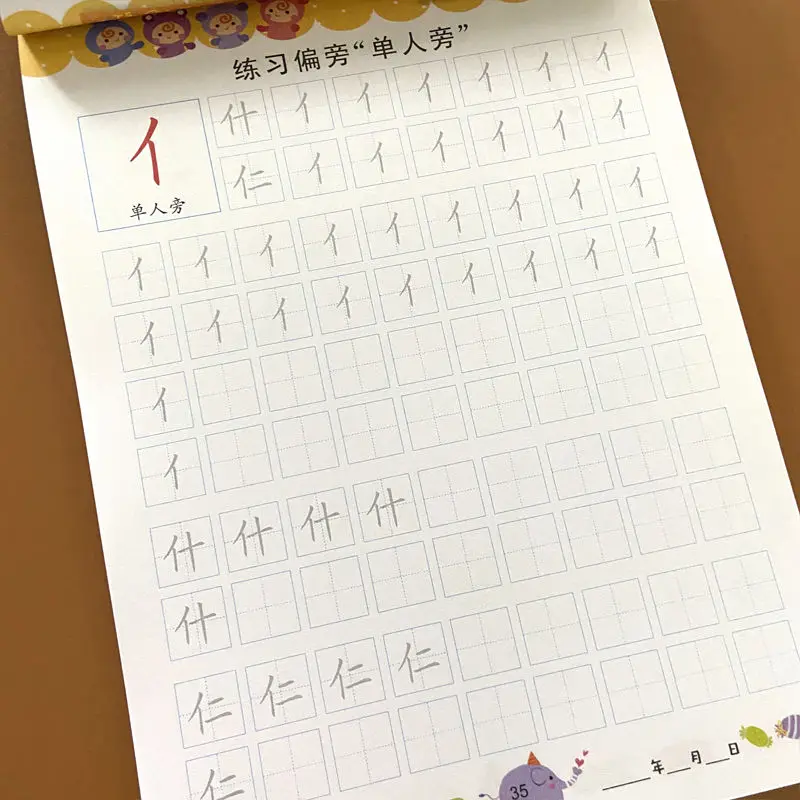 练习偏旁“单人旁”
亻
单人旁
什 亻 亻 亻 亻 亻 亻
仁 亻 亻 亻 亻 亻 亻
亻 亻 亻 亻 亻 亻 亻 亻 亻
亻 亻 亻 亻 亻 亻 亻 亻 亻
亻
亻
什 什 什 什
什
仁 仁 仁 仁
仁
35
____年__月__日